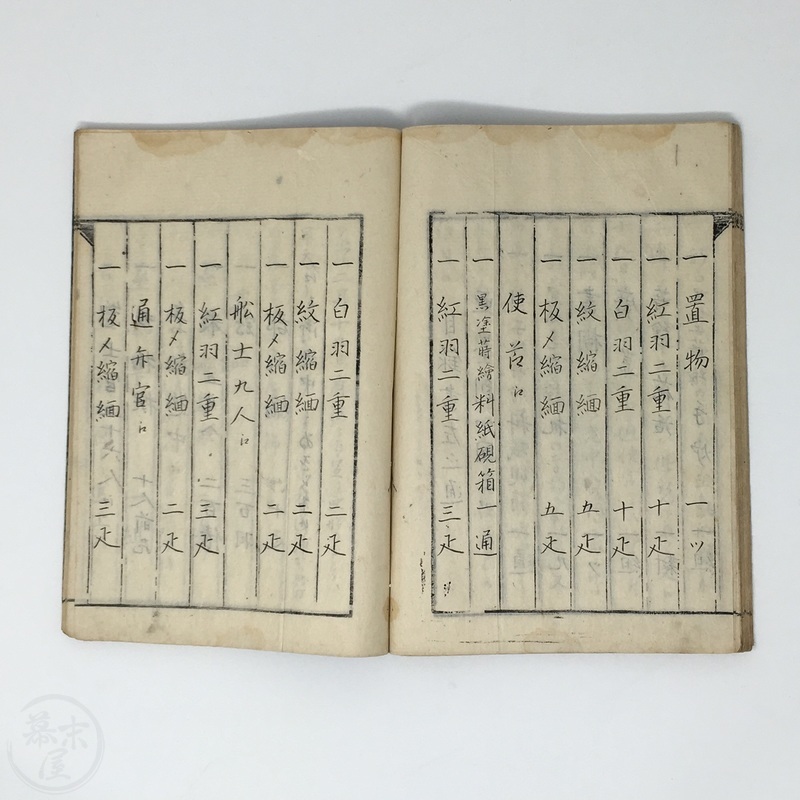 一 置物 一ツ
一 紅羽二重 十疋
一 白羽二重 十疋
一 紋縮緬 五疋
一 板〆縮緬 五疋
使節江
一 黒塗蒔絵料紙硯箱一通
一 紅羽二重 三疋
一 白羽二重 二疋
一 紋縮緬 二疋
一 板〆縮緬 二疋
舩士九人江
一 紅羽二重 三疋
一 板〆縮緬 二疋
通弁官江
一 板〆縮緬 三疋
幕末屋